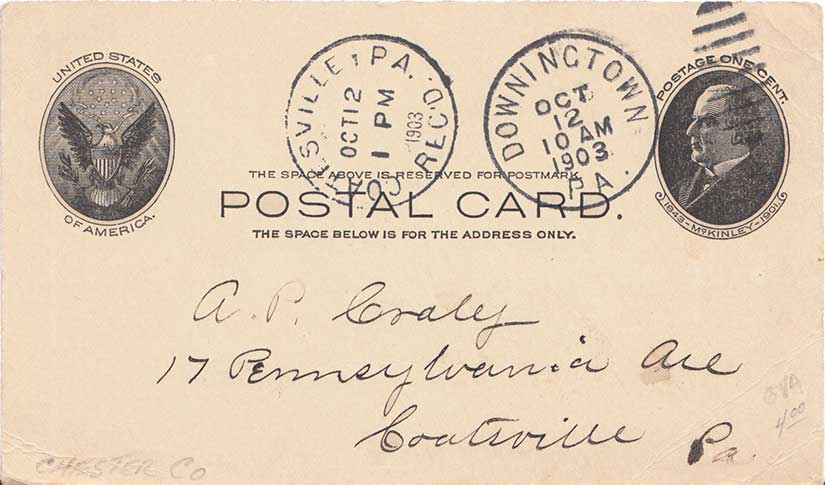 UNITED STATES
OF AMERICA.
COATESVILLE, PA. REC'D.
OCT 12
1 PM
1903
DOWNINGTOWN
OCT
12
10 AM
1903
PA.
POSTAGE ONE CENT.
1843-McKINLEY-1901.
THE SPACE ABOVE IS RESERVED FOR POSTMARK.
POSTAL CARD.
THE SPACE BELOW IS FOR THE ADDRESS ONLY.
A. P.
17 Pennsylvania Ave
Coatsville Pa.
4.00
CHESTER CO